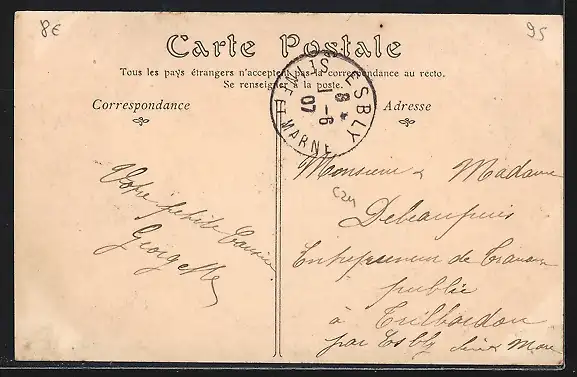 8€
95
Carte Postale
Tous les pays étrangers n'acceptent pas la correspondance au recto.
Se renseigner à la poste.
Correspondance
Adresse
ESBLY
8 *
1-6
07
SEINE-ET-MARNE
Votre petite
Georgette
Monsieur & Madame
Entrepreneur de Travaux
public
à Trilbardou
par Esbly Seine Marne